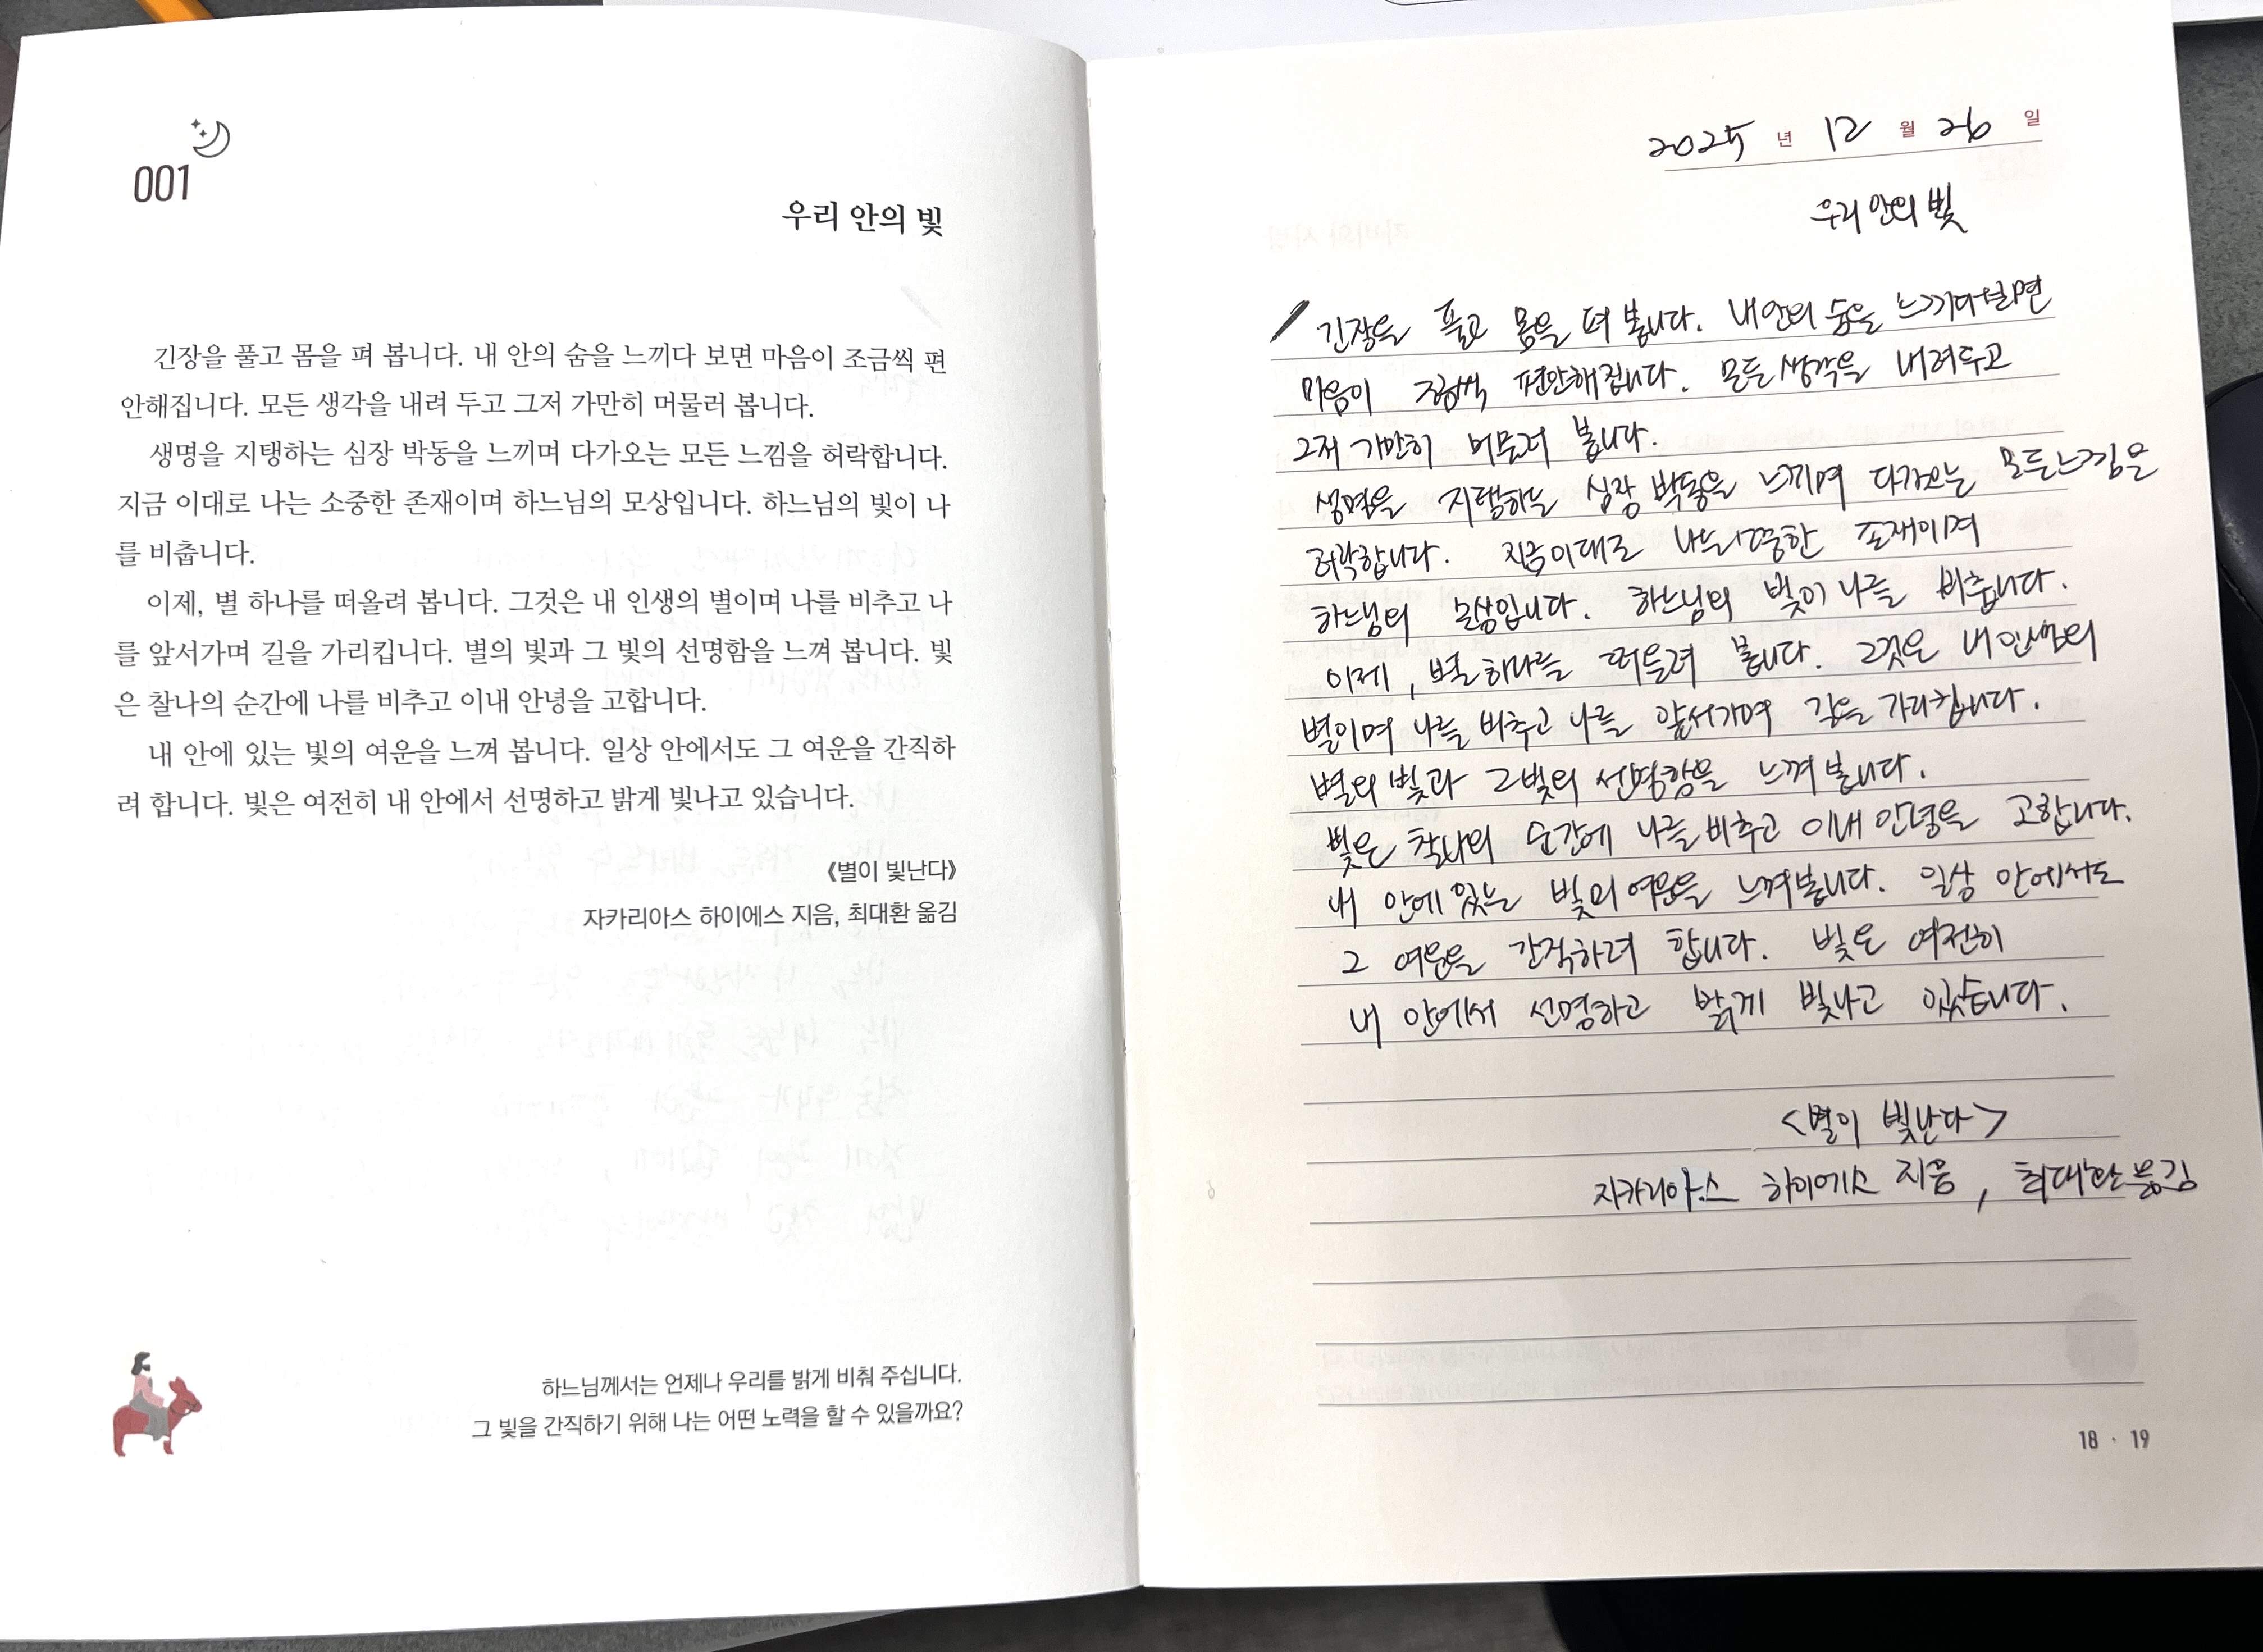 001
우리 안의 빛
긴장을 풀고 몸을 펴 봅니다. 내 안의 숨을 느끼다 보면 마음이 조금씩 편
안해집니다. 모든 생각을 내려 두고 그저 가만히 머물러 봅니다.
생명을 지탱하는 심장 박동을 느끼며 다가오는 모든 느낌을 허락합니다.
지금 이대로 나는 소중한 존재이며 하느님의 모상입니다. 하느님의 빛이 나
를 비춥니다.
이제, 별 하나를 떠올려 봅니다. 그것은 내 인생의 별이며 나를 비추고 나
를 앞서가며 길을 가리킵니다. 별의 빛과 그 빛의 선명함을 느껴 봅니다. 빛
은 찰나의 순간에 나를 비추고 이내 안녕을 고합니다.
내 안에 있는 빛의 여운을 느껴 봅니다. 일상 안에서도 그 여운을 간직하
려 합니다. 빛은 여전히 내 안에서 선명하고 밝게 빛나고 있습니다.
《별이 빛난다》
자카리아스 하이에스 지음, 최대환 옮김
하느님께서는 언제나 우리를 밝게 비춰 주십니다.
그 빛을 간직하기 위해 나는 어떤 노력을 할 수 있을까요?
2025 년 12 월 26 일
우리 안의 빛
긴장을 풀고 몸을 펴 봅니다. 내 안의 숨을 느끼다보면
마음이 조금씩 편안해집니다. 모든 생각을 내려두고
그저 가만히 머물러 봅니다.
생명을 지탱하는 심장 박동을 느끼며 다가오는 모든 느낌을
허락합니다. 지금 이대로 나는 소중한 존재이며
하느님의 모상입니다. 하느님의 빛이 나를 비춥니다.
이제, 별 하나를 떠올려 봅니다. 그것은 내 인생의
별이며 나를 비추고 나를 앞서가며 길을 가리킵니다.
별의 빛과 그 빛의 선명함을 느껴 봅니다.
빛은 찰나의 순간에 나를 비추고 이내 안녕을 고합니다.
내 안에 있는 빛의 여운을 느껴 봅니다. 일상 안에서도
그 여운을 간직하려 합니다. 빛은 여전히
내 안에서 선명하고 밝게 빛나고 있습니다.
<별이 빛난다>
자카리아스 하이에스 지음, 최대환 옮김
18 · 19